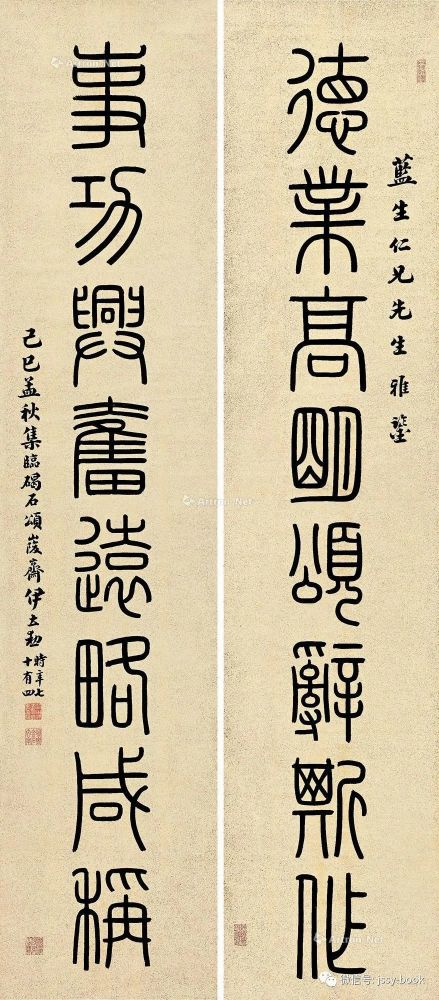 藍生仁兄先生雅鑒
德業高明頌辭斯作
事功興奮遠略咸稱
己巳孟秋集臨碣石頌峻齋伊立勳時年七
十有四
Artron.Net
微信号: jssy-book